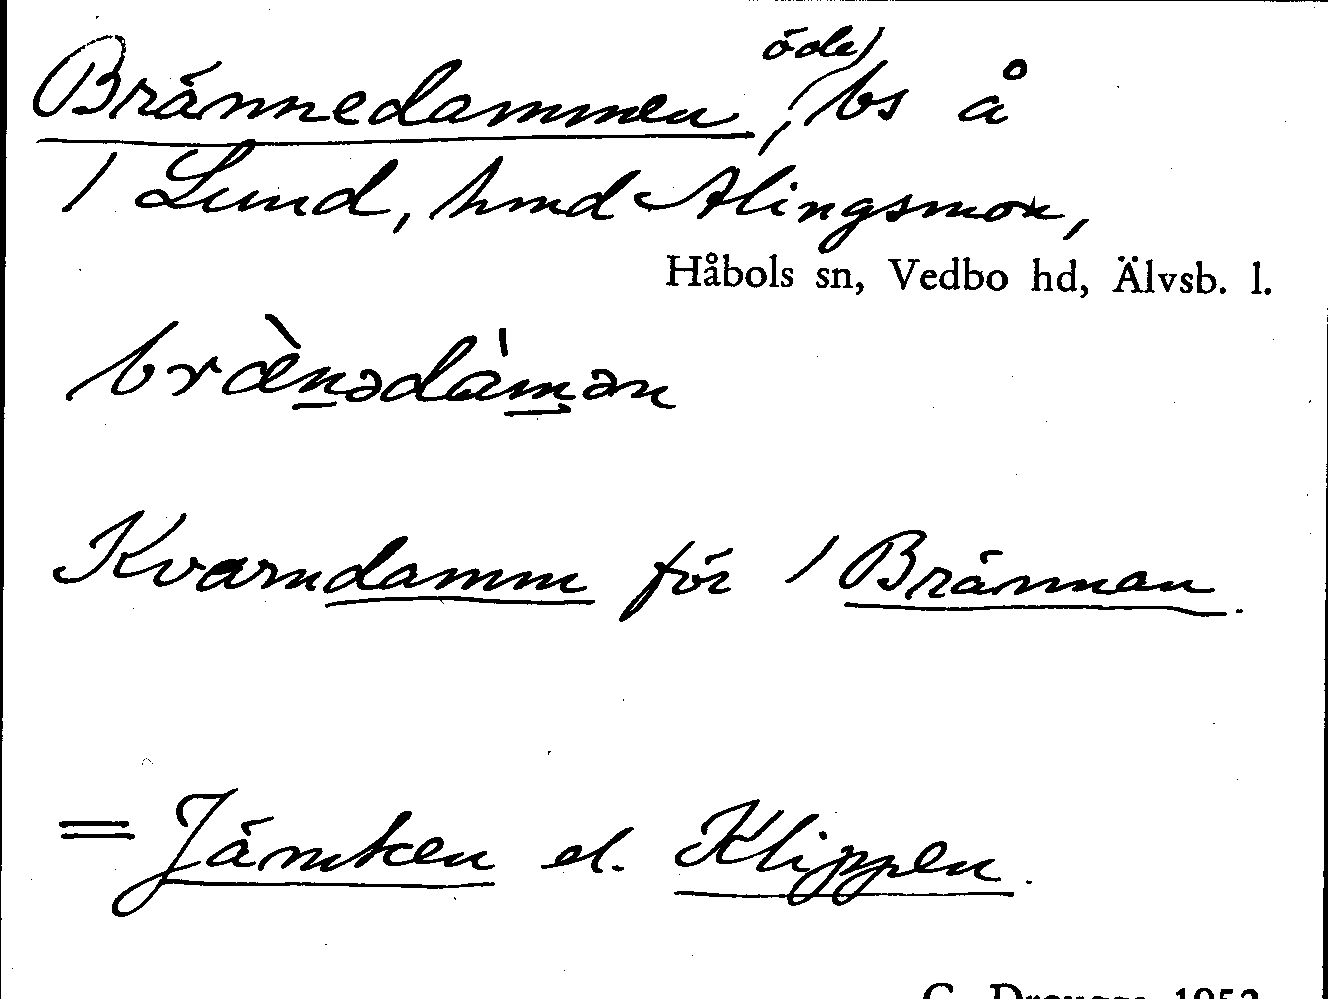 Brännedammen, (öde) bs å
/ Lund, hmd Alingsmon,
Håbols sn, Vedbo hd, Älvsb. l.
bræ̀nədàmən
Kvarndamm för / Brännan.
= Jämken el. Klippen.
1953